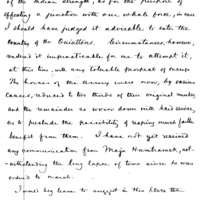 of the Indian strength, as for the purpose of
effecting a junction with our whole force, in case
I should have judged it advisable to enter the
Country of the Ouiattons. Circumstances, however,
rendered it impracticable for me to attempt it,
at this time, with any tolerable prospect of success.
The horses of the army were now, by various
causes, reduced to two thirds of their original number
and the remainder so worn down with hard service,
as to preclude the possibility of reaping much further
benefit from them. I have not yet received
any communication from Major Hamtramck, not-
withstanding the long lapse of time since he was
ordered to march.
I must beg leave to suggest in this place the